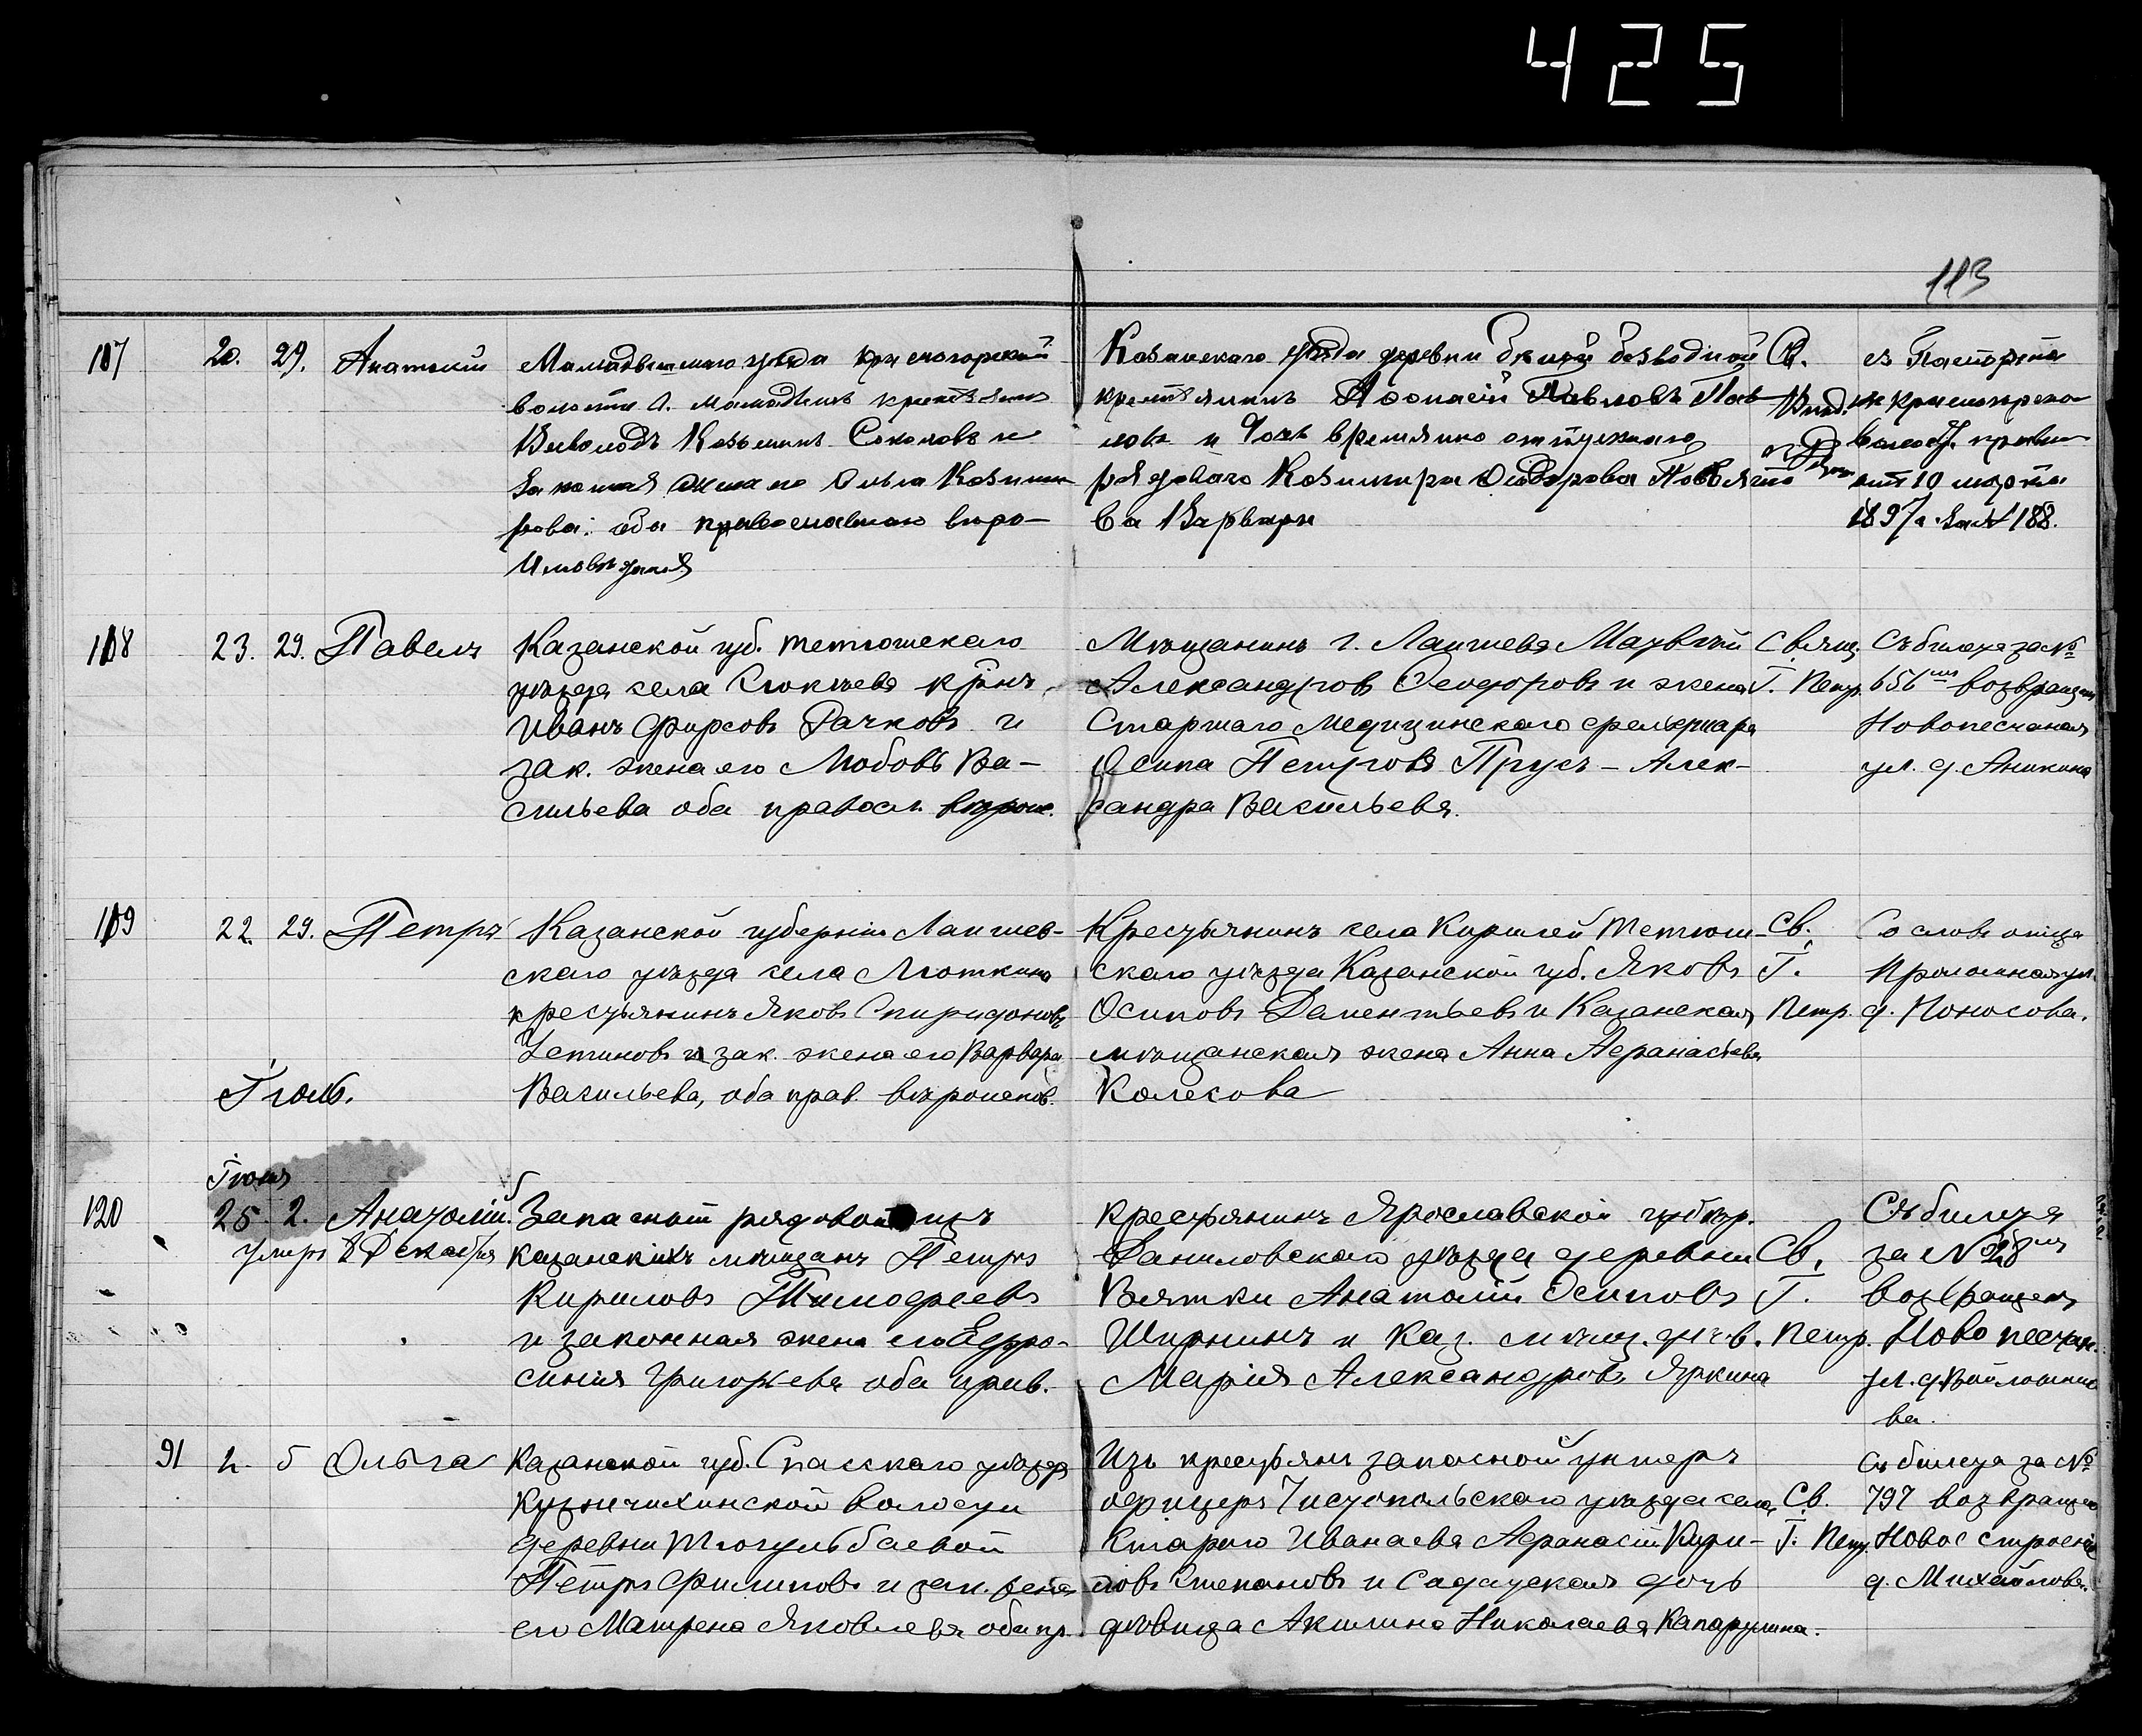 425
113
107
20.
29.
Анатолій
Мамадышскаго уѣзда Красногорской
волости с. Мамадышъ крестьянинъ
Козьминъ Соколовъ и
законная жена его Ольга Казими-
рова: оба православнаго вѣро-
исповѣданія
Казанскаго уѣзда деревни безводной
крестьянинъ Аѳонасій Павловъ Пав-
ловъ и дочь временно отпускнаго
рядоваго Казимира Ѳедорова
ва Варвара
Св.
съ Паспорта
волост. правл.
отъ 10 марта
1897 г. за № 188.
118
23.
29.
Павелъ
Казанской губ. Тетюшскаго
уѣзда села Ключева кр-нъ
Иванъ Фирсовъ Рачковъ и
зак. жена его Любовь Ва-
сильева оба правосл. вѣроис.
Мѣщанинъ г. Лаишева Матвѣй
Александровъ Ѳеодоровъ и жена
Старшаго Медицинскаго фельдшара
Осипа Петрова Прусъ - Алек-
сандра Васильева.
Свящ.
Г. Петр.
Съ билета за №
656 мъ возвращен
Новопесчаная
ул. д. Аникина
119
22.
29.
Петръ
Казанской губерніи Лаишев-
скаго уѣзда села Люткино
крестьянинъ Яковъ Спиридоновъ
Устиновъ и зак. жена его Варвара
Васильева, оба прав. вѣроиспов.
Крестьянинъ села Киршей Тетюш-
скаго уѣзда Казанской губ. Яковъ
Осиповъ Дементьевъ и Казанская
мѣщанская жена Анна Афанасьева
Колесова
Св.
Г.
Петр.
Со словъ отца
Проломная ул.
д. Поносова.
Іюль.
120
Іюня
25
2.
Анатолій.
умеръ 8 Декабря
Запасной рядовой изъ
казанскихъ мѣщанъ Петръ
Кириловъ Тимофеевъ
и законная жена его Ефро-
синія Григорьева оба прав.
Крестьянинъ Ярославской губер.
Даниловскаго уѣзда деревни
Вятки Анатолій Осиповъ
Ширнинъ и Каз. мѣщ. дѣв.
Марія Александровъ Яркина
Св.
Г.
Петр.
Съ билета
за № 28 мъ
возвращенъ
Ново песчан.
ул. д. Войлошнико
ва.
91
2.
5
Ольга
Казанской губ. Спасскаго уѣзда
Кузнечихинской волости
деревни Тюгульбаевой
Петръ Филиповъ и зак. жена
его Матрена Яковлева оба пр.
Изъ крестьянъ запасной унтеръ
офицеръ Чистопольскаго уѣзда села
Стараго Иванаева Афанасій Кири-
ловъ Степановъ и Солдатская дочь
дѣвица Акилина Николаева Капарулина.
Св.
Г. Петр.
Съ билета за №
797 возвращен
Новое строеніе
д. Михайлова.